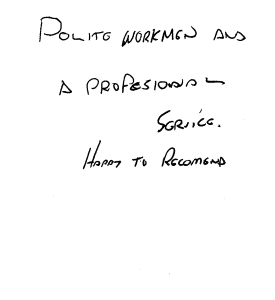 POLITE WORKMEN AND
A PROFESIONAL
SERVICE.
HAPPY TO RECOMEND